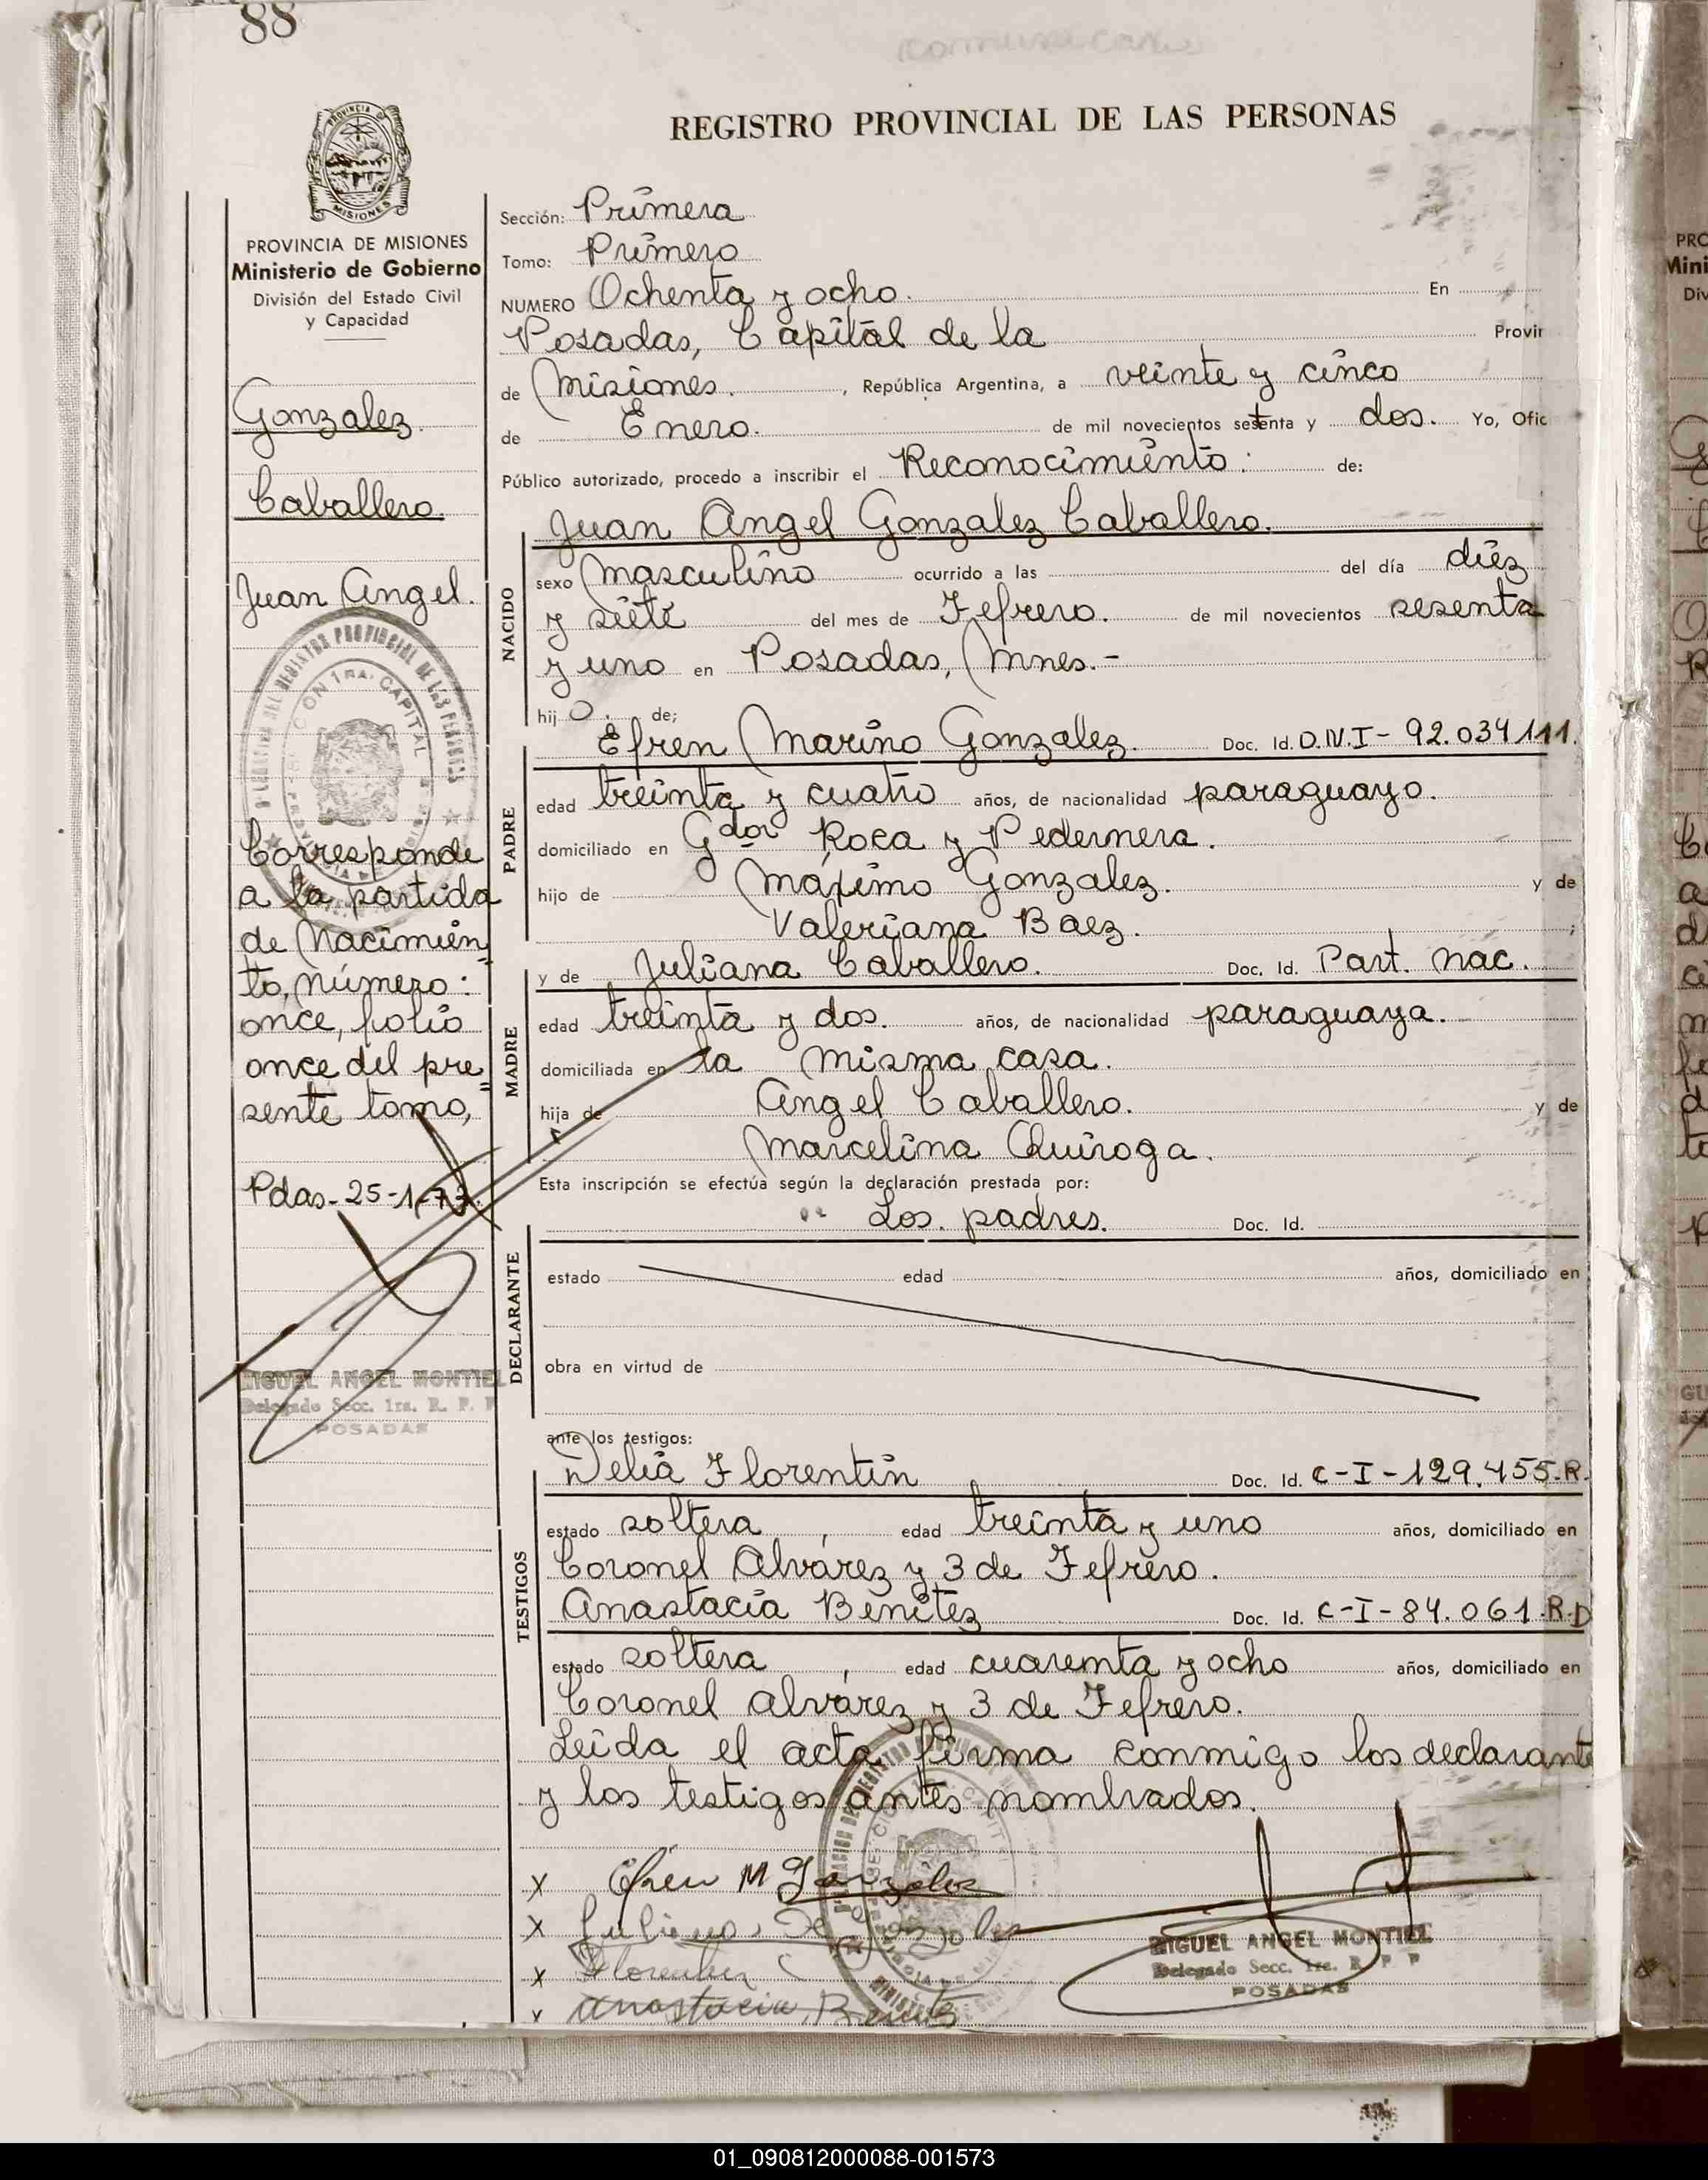 88
PROVINCIA DE
MISIONES
REGISTRO PROVINCIAL DE LAS PERSONAS
PROVINCIA DE MISIONES
Ministerio de Gobierno
División del Estado Civil
y Capacidad
Gonzalez
Caballero.
Juan Angel.
Corresponde
a la partida
de Nacimien
to, número:
once, folio
once del pre
sente tomo,
Pdas-25-1-72.
MIGUEL ANGEL MONTIEL
Delegado Secc. 1ra. R. P. P
POSADAS
Sección: Primera
Tomo: Primero
NUMERO Ochenta y ocho. En
Posadas, Capital de la Provin
de Misiones. , República Argentina, a veinte y cinco
de Enero. de mil novecientos setenta y dos. Yo, Ofic
Público autorizado, procedo a inscribir el Reconocimiento: de:
NACIDO
Juan Angel Gonzalez Caballero.
sexo masculino ocurrido a las del día diez
y siete del mes de Febrero. de mil novecientos sesenta
y uno en Posadas, Mnes.-
hij o. de;
PADRE
Efren Marino Gonzalez. Doc. Id. D.N.I- 92.034.111.
edad treinta y cuatro años, de nacionalidad paraguayo.
domiciliado en Gdor Roca y Pedernera.
hijo de Máximo Gonzalez. y de
Valeriana Baez. ;
MADRE
y de Juliana Caballero. Doc. Id. Part. nac.
edad treinta y dos. años, de nacionalidad paraguaya.
domiciliada en la misma casa.
hija de Angel Caballero. y de
Marcelina Quiroga.
Esta inscripción se efectúa según la declaración prestada por:
Los padres. Doc. Id.
DECLARANTE
estado edad años, domiciliado en
obra en virtud de
ante los testigos:
TESTIGOS
Delia Florentín Doc. Id. C-I-129.455.R.
estado soltera , edad treinta y uno años, domiciliado en
Coronel Alvárez y 3 de Febrero.
Anastacia Benitez Doc. Id. C-I-84.061.R.D
estado soltera , edad cuarenta y ocho años, domiciliado en
Coronel alvárez y 3 de Febrero.
Leída el acta, firma conmigo los declarante
y los testigos antes nombrados.
x Efren M Gonzalez
x Juliana De Gonzales
x Florentin
x Anastacia Benitez
MIGUEL ANGEL MONTIEL
Delegado Secc. 1ra. R. P. P
POSADAS
01_090812000088-001573